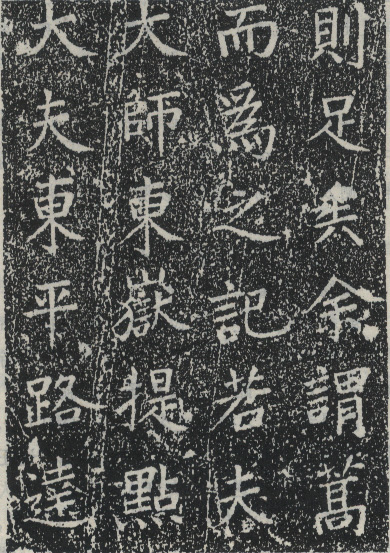 則足矣余謂萬
而為之記若夫
大師東嶽提點
大夫東平路達